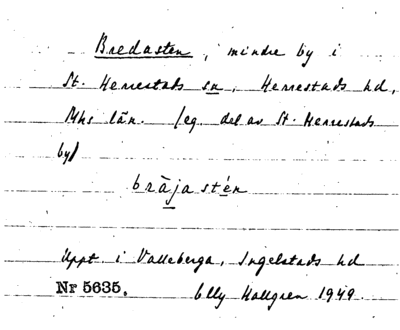 Bredasten, mindre by i
St. Herrestads sn, Herrestads hd,
Mhs län. (eg. del av St. Herrestads
by)
bräjastén
Uppt. i Valleberga, Ingelstads hd
Nr 5635. Elly Hallgren 1949.